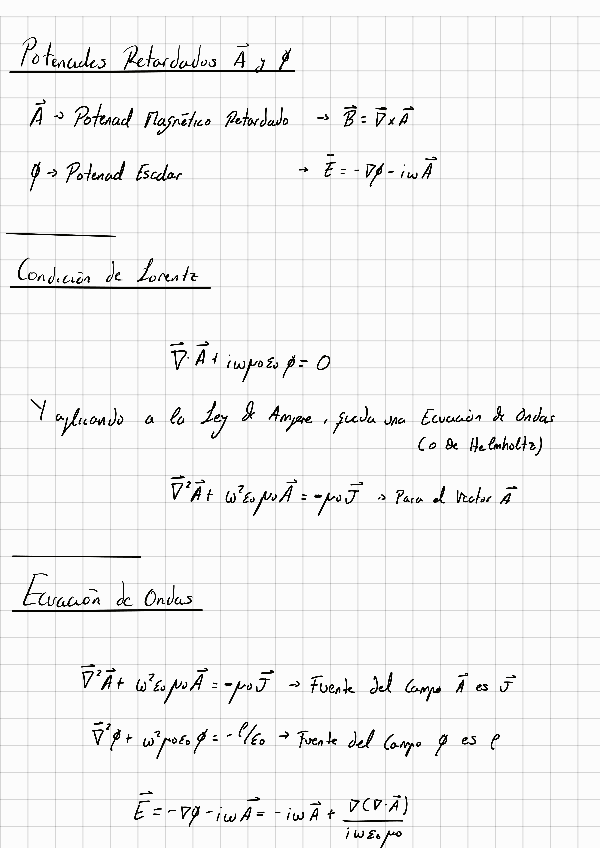 Potenciales Retardados A⃗ y ϕ
A⃗ → Potencial Magnético Retardado → B⃗ = ∇⃗ × A⃗
ϕ → Potencial Escalar → E⃗ = -∇ϕ - iωA⃗
Condición de Lorentz
∇⃗ · A⃗ + iωμ₀ε₀ ϕ = 0
Y aplicando a la Ley de Ampere, queda una Ecuación de Ondas
(o de Helmholtz)
∇⃗²A⃗ + ω²ε₀μ₀A⃗ = -μ₀J⃗ → Para el vector A⃗
Ecuación de Ondas
∇⃗²A⃗ + ω²ε₀μ₀A⃗ = -μ₀J⃗ → Fuente del Campo A⃗ es J⃗
∇⃗²ϕ + ω²μ₀ε₀ϕ = -ρ/ε₀ → Fuente del Campo ϕ es ρ
E⃗ = -∇ϕ - iωA⃗ = -iωA⃗ + ∇(∇·A⃗) / iωε₀μ₀